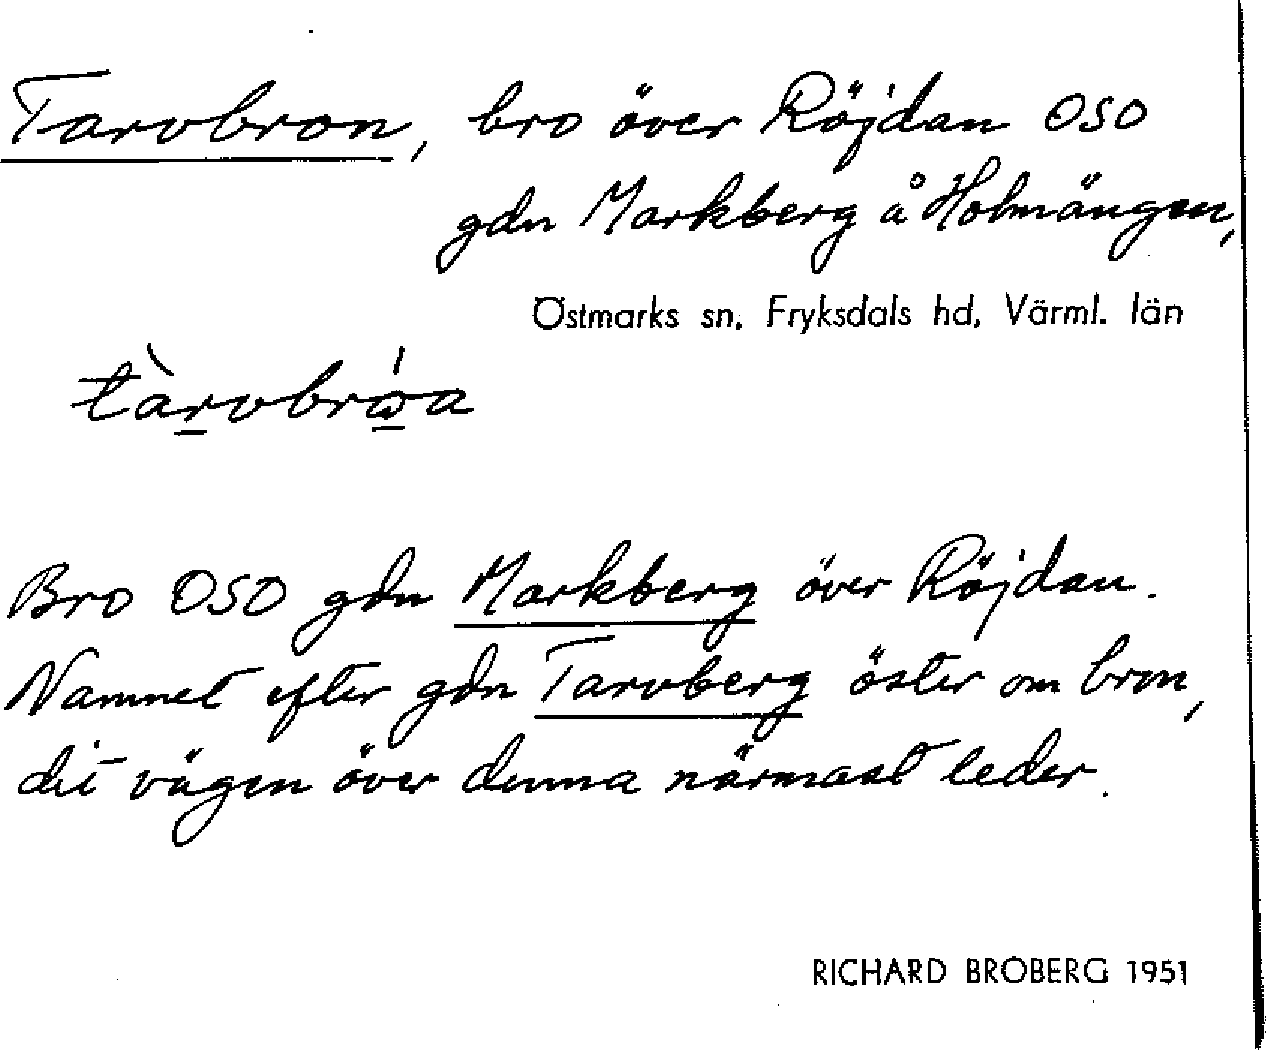 Tarvbron, bro över Röjdan OSO
gdn Markberg å Holmängen,
Östmarks sn, Fryksdals hd, Värml. län
tàrvbrόa
Bro OSO gdn Markberg över Röjdan.
Namnet efter gdn Tarvberg öster om bron,
dit vägen över denna närmast leder.
RICHARD BROBERG 1951